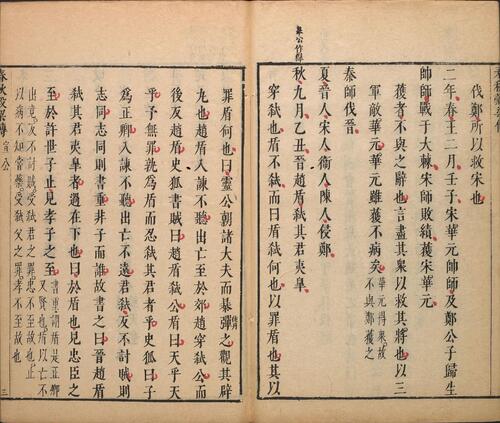 皋公作獋
伐鄭所以救宋也
二年春王二月壬子宋華元帥師及鄭公子歸生
帥師戰于大棘宋師敗績獲宋華元
獲者不與之辭也言盡其衆以救其將也以三
軍敵華元華元雖獲不病矣華元得衆故
不與鄭獲之
秦師伐晉
夏晉人宋人衛人陳人侵鄭
秋九月乙丑晉趙盾弑其君夷皋
穿弑也盾不弑而曰盾弑何也以罪盾也其以
罪盾何也曰靈公朝諸大夫而暴彈之觀其辟
丸也趙盾入諫不聽出亡至於郊趙穿弑公而
後反趙盾史狐書賊曰趙盾弑公盾曰天乎天
乎予無罪孰爲盾而忍弑其君者乎史狐曰子
爲正卿入諫不聽出亡不遠君弑反不討賊則
志同志同則書重非子而誰故書之曰晉趙盾
弑其君夷皋者過在下也曰於盾也見忠臣之
至於許世子止見孝子之至書重謂盾是正卿
又賢也盾以亡不
出竟反不討賊受弑君之罪忠不至故也止
以病不知嘗藥受弑父之罪孝不至故也
春秋穀梁傳 宣公
三